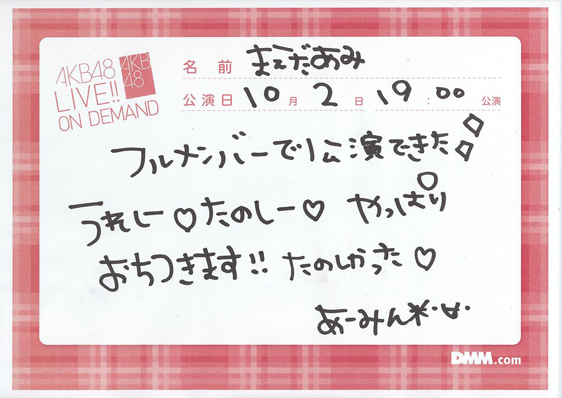 AKB48
LIVE!!
ON DEMAND
AKB
48
名前 まえだあみ
公演日 10月2日 19:00公演
フルメンバーで公演できた◇◇
うれしー♡たのしー♡ やっぱり
おちつきます!! たのしかった♡
あーみん*･ω･
DMM.com